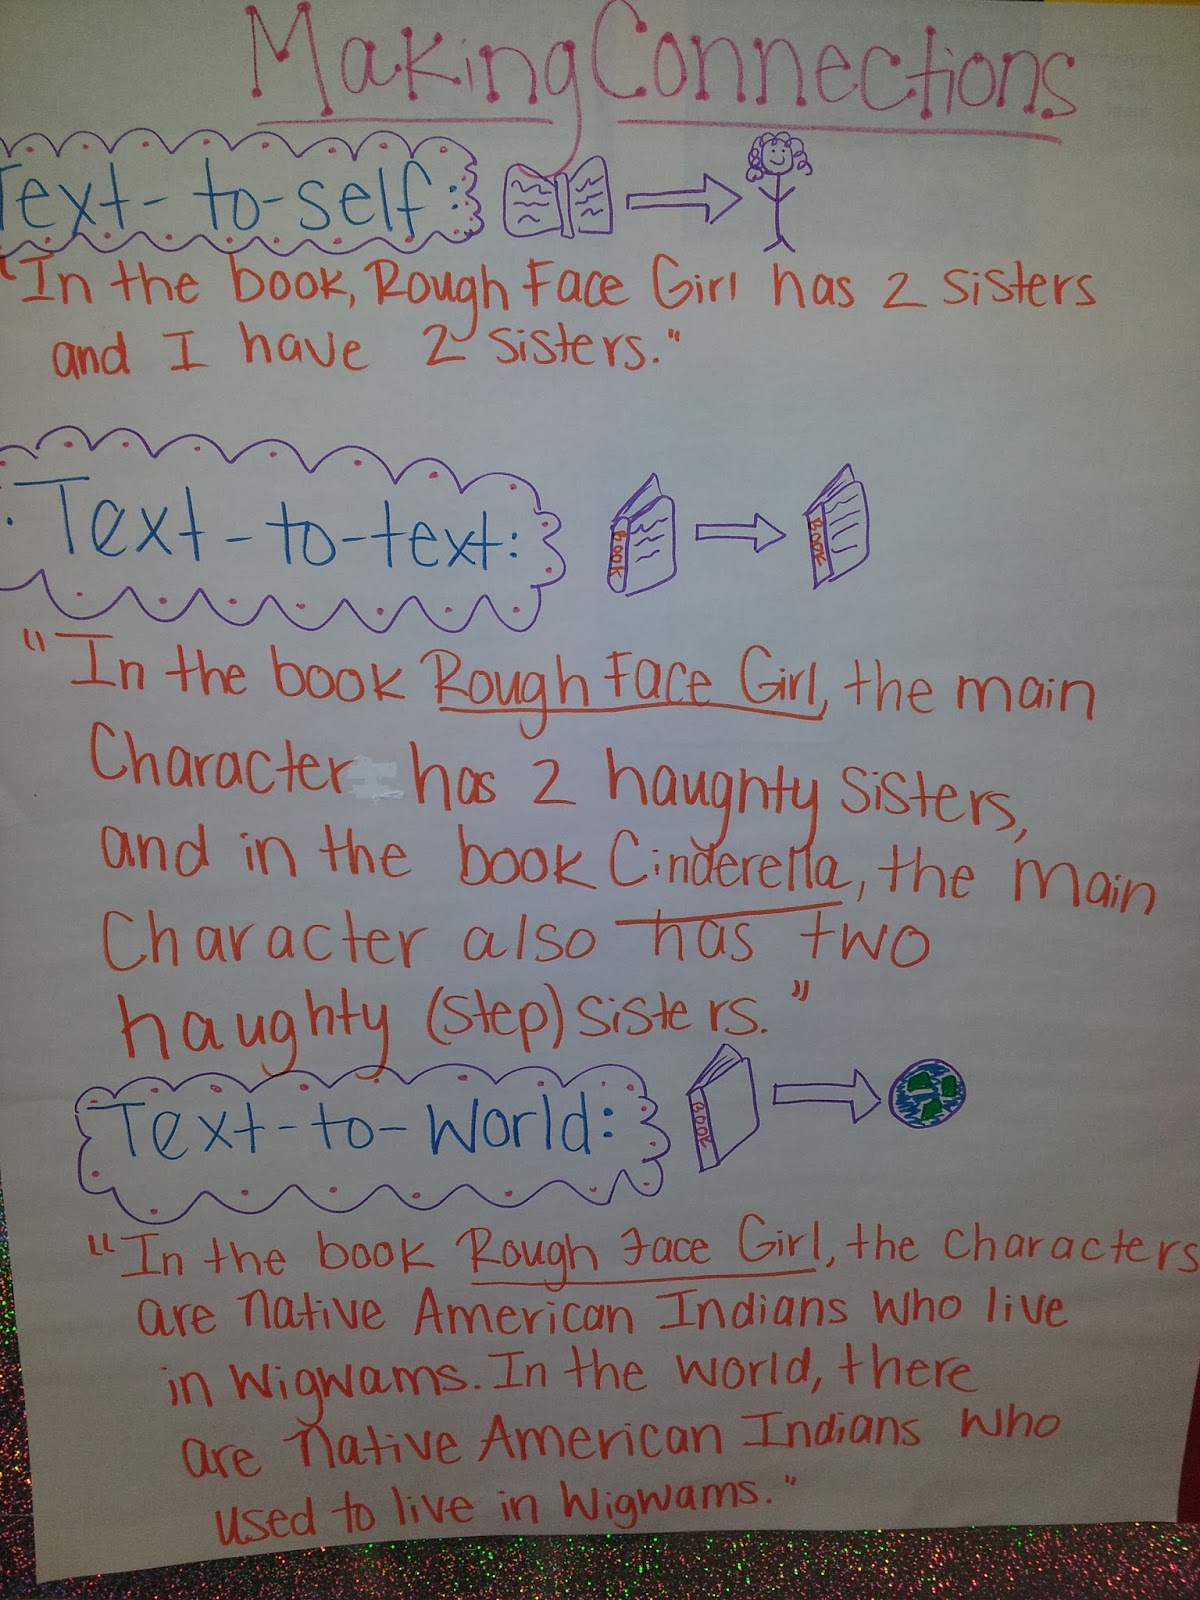 Making Connections
Text-to-self:
"In the book, Rough Face Girl has 2 sisters
and I have 2 sisters."
Text-to-text:
BOOK
BOOK
"In the book Rough Face Girl, the main
Character has 2 haughty sisters,
and in the book Cinderella, the main
Character also has two
haughty (step) sisters."
Text-to-World:
BOOK
"In the book Rough Face Girl, the characters
are Native American Indians who live
in Wigwams. In the world, there
are Native American Indians who
used to live in Wigwams."